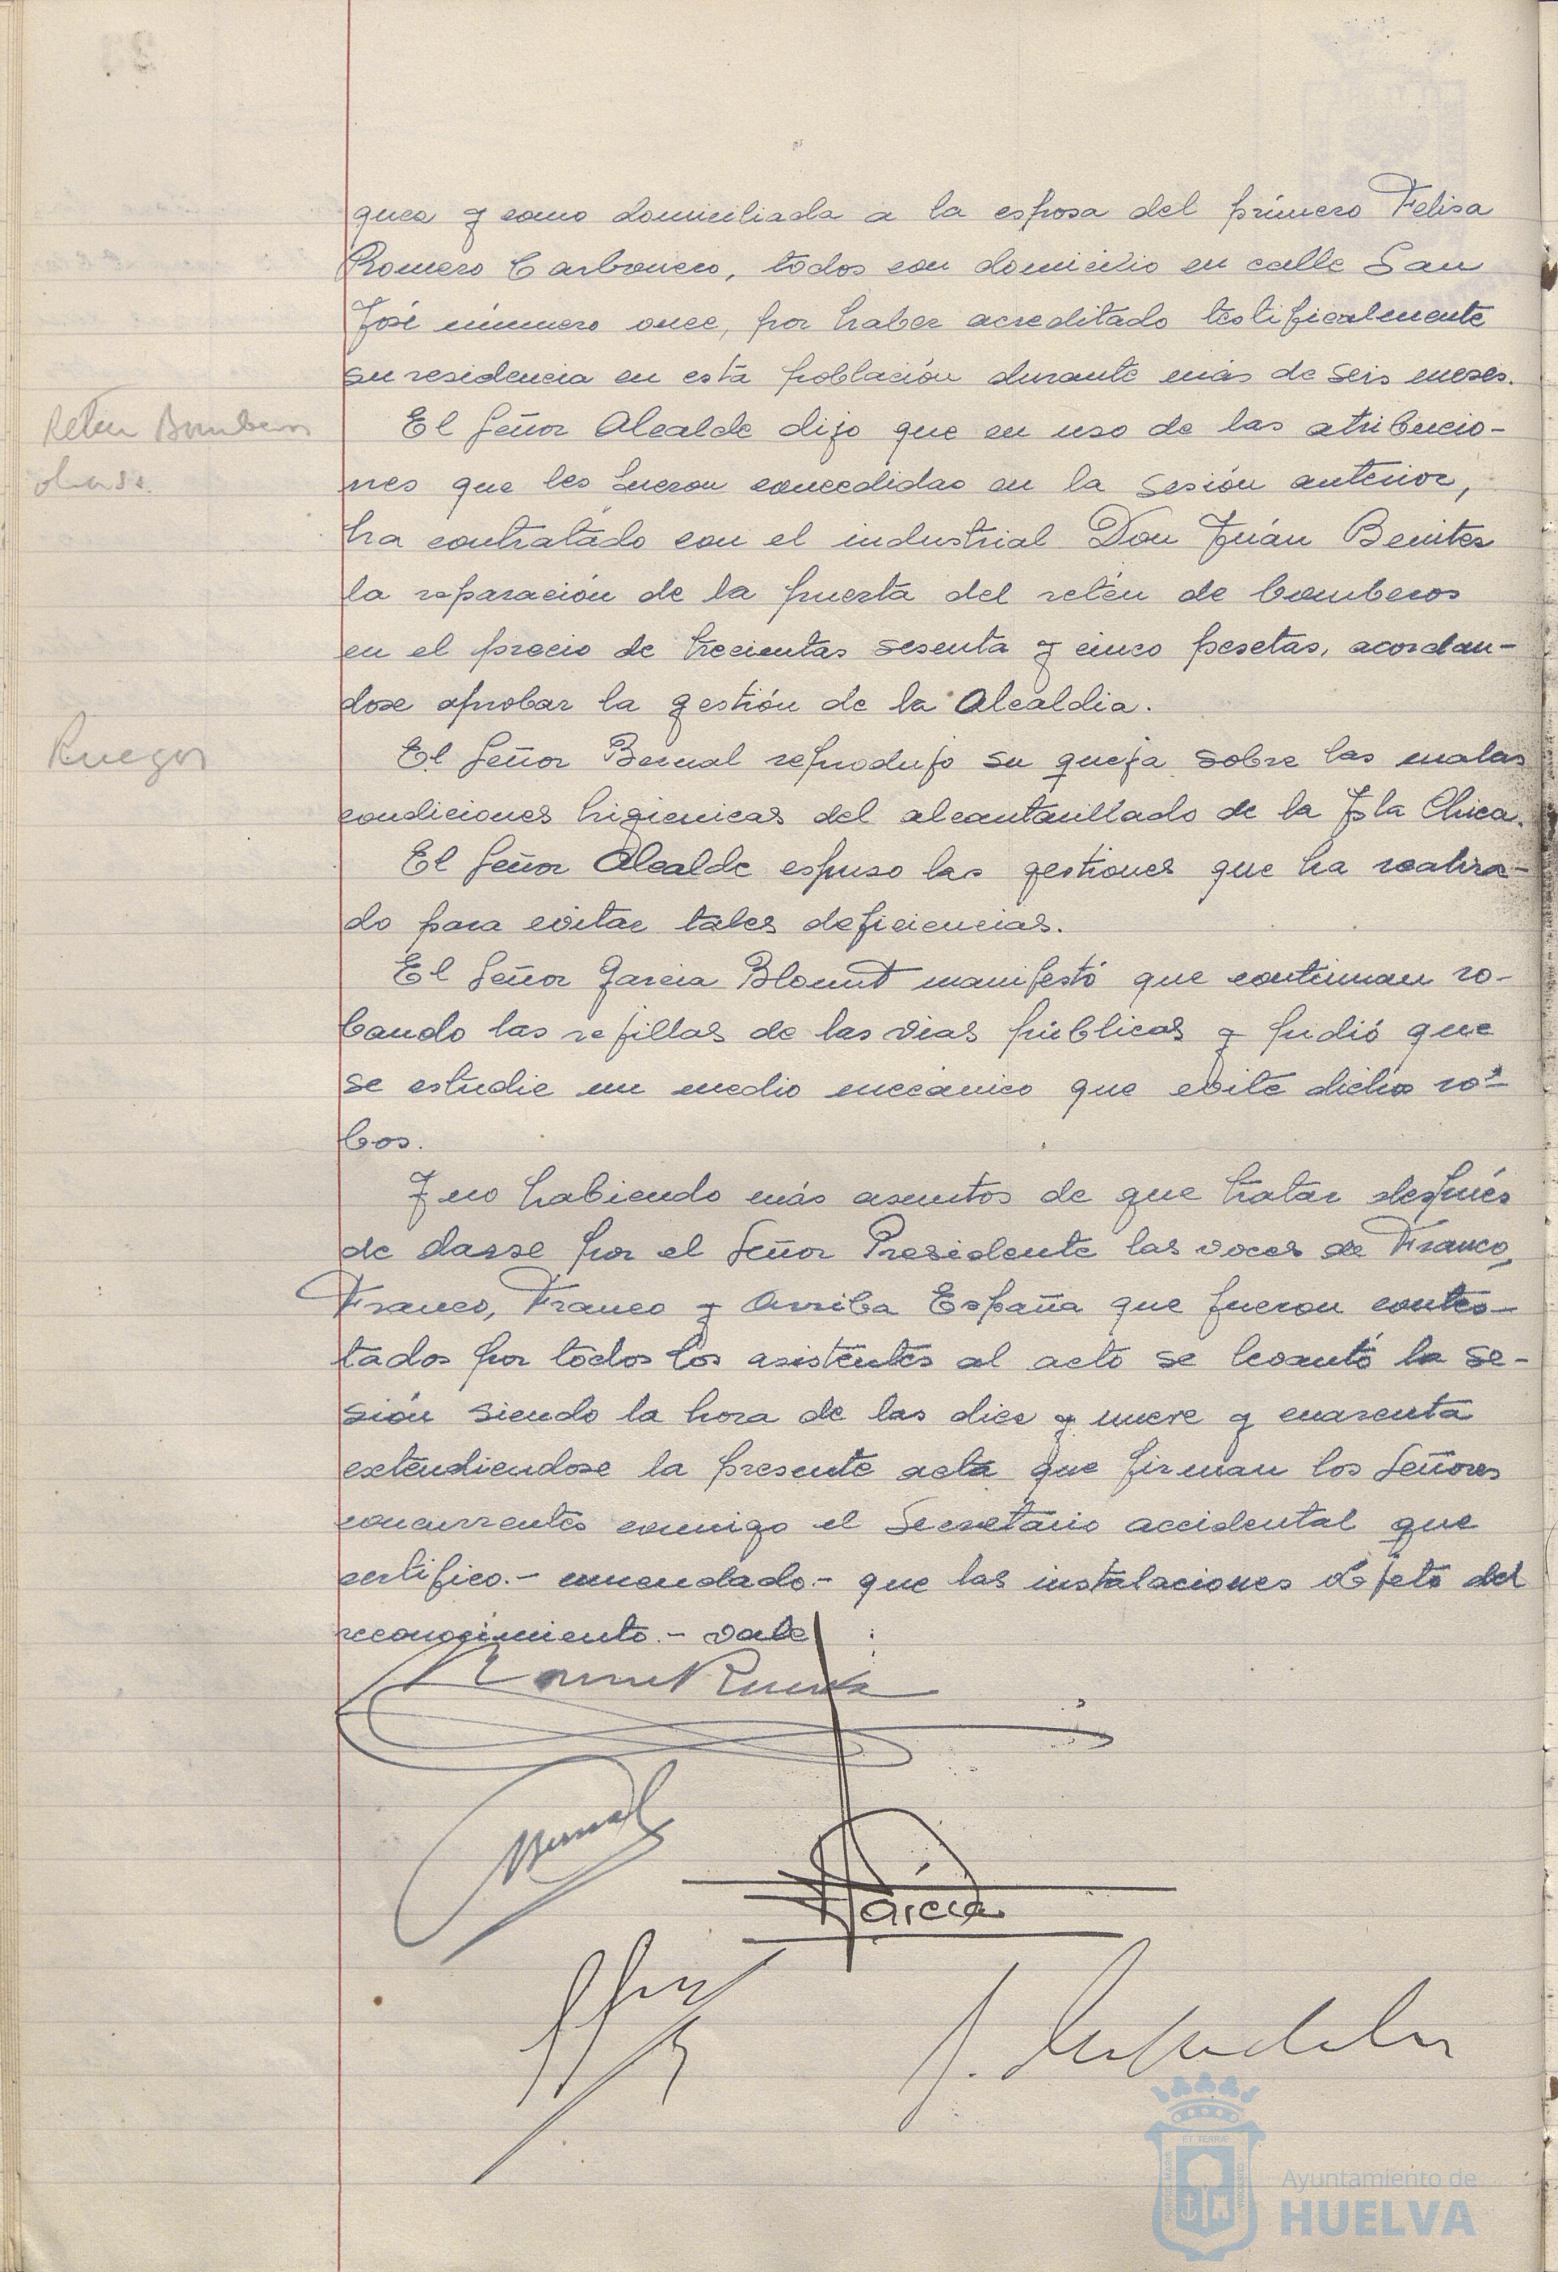 quea y como domiciliada a la esposa del primero Felisa
Romero Carbonero, todos con domicilio en calle San
José número once, por haber acreditado testificalmente
su residencia en esta población durante más de seis meses.
Retén Bomberos
obras.
El Señor Alcalde dijo que en uso de las atribucio-
nes que les fueron concedidas en la sesión anterior,
ha contratado con el industrial Don Juán Benites
la reparación de la puerta del retén de bomberos
en el precio de trecientas sesenta y cinco pesetas, acordan-
dose aprobar la gestión de la Alcaldia.
Ruegos
El Señor Bernal reprodujo su queja sobre las malas
condiciones higienicas del alcantarillado de la Isla Chica.
El Señor Alcalde espuso las gestiones que ha realiza-
do para evitar tales deficiencias.
El Señor Garcia Blount manifestó que continuan ro-
bando las rejillas de las vias públicas y pidió que
se estudie un medio mecánico que evite dichos ro-
bos.
Y no habiendo más asuntos de que tratar después
de darse por el Señor Presidente las voces de Franco,
Franco, Franco y Arriba España que fueron contes-
tados por todos los asistentes al acto se levantó la se-
sión siendo la hora de las diez y nueve y cuarenta
extendiendose la presente acta que firman los Señores
concurrentes conmigo el Secretario accidental que
certifico.- enmendado.- que las instalaciones objeto del
reconocimiento.- vale
Bernal
García
ET TERRÆ
PORTUS MARIS
CUSTODIA
Ayuntamiento de
HUELVA